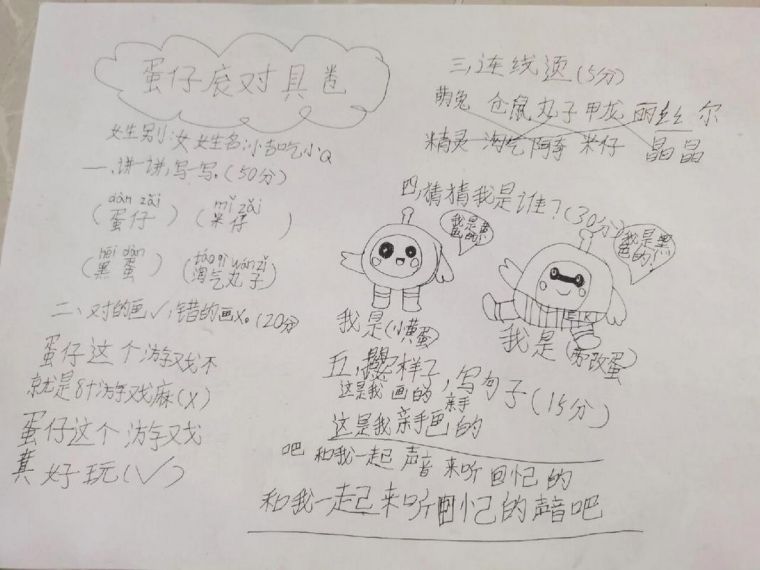 蛋仔辰对具卷
女生别:女 女生名:小吉吃小Q
一、讲一讲,写一写。(50分)
dàn zǎi mǐ zǎi
(蛋仔) (米仔)
hēi dàn táo qì wán zǐ
(黑蛋) (淘气丸子)
二、对的画√,错的画X。(20分
蛋仔这个游戏不
就是8才游戏麻(X)
蛋仔这个游戏
真好玩(√)
三、连线须(5分)
萌兔 仓鼠 丸子 甲龙 丽丝 尔
精灵 淘气 阿哥 米仔 晶晶
四、猜猜我是谁?(30分)
我是黄色的!
我是黑色的!
我是(小黄蛋)
我是(劳改蛋)
五、照样子,写句子(15分)
这是我画的,亲手
这是我亲手画的
吧 和我一起 声音 来听 回忆 的
和我一起来听回忆的声音吧